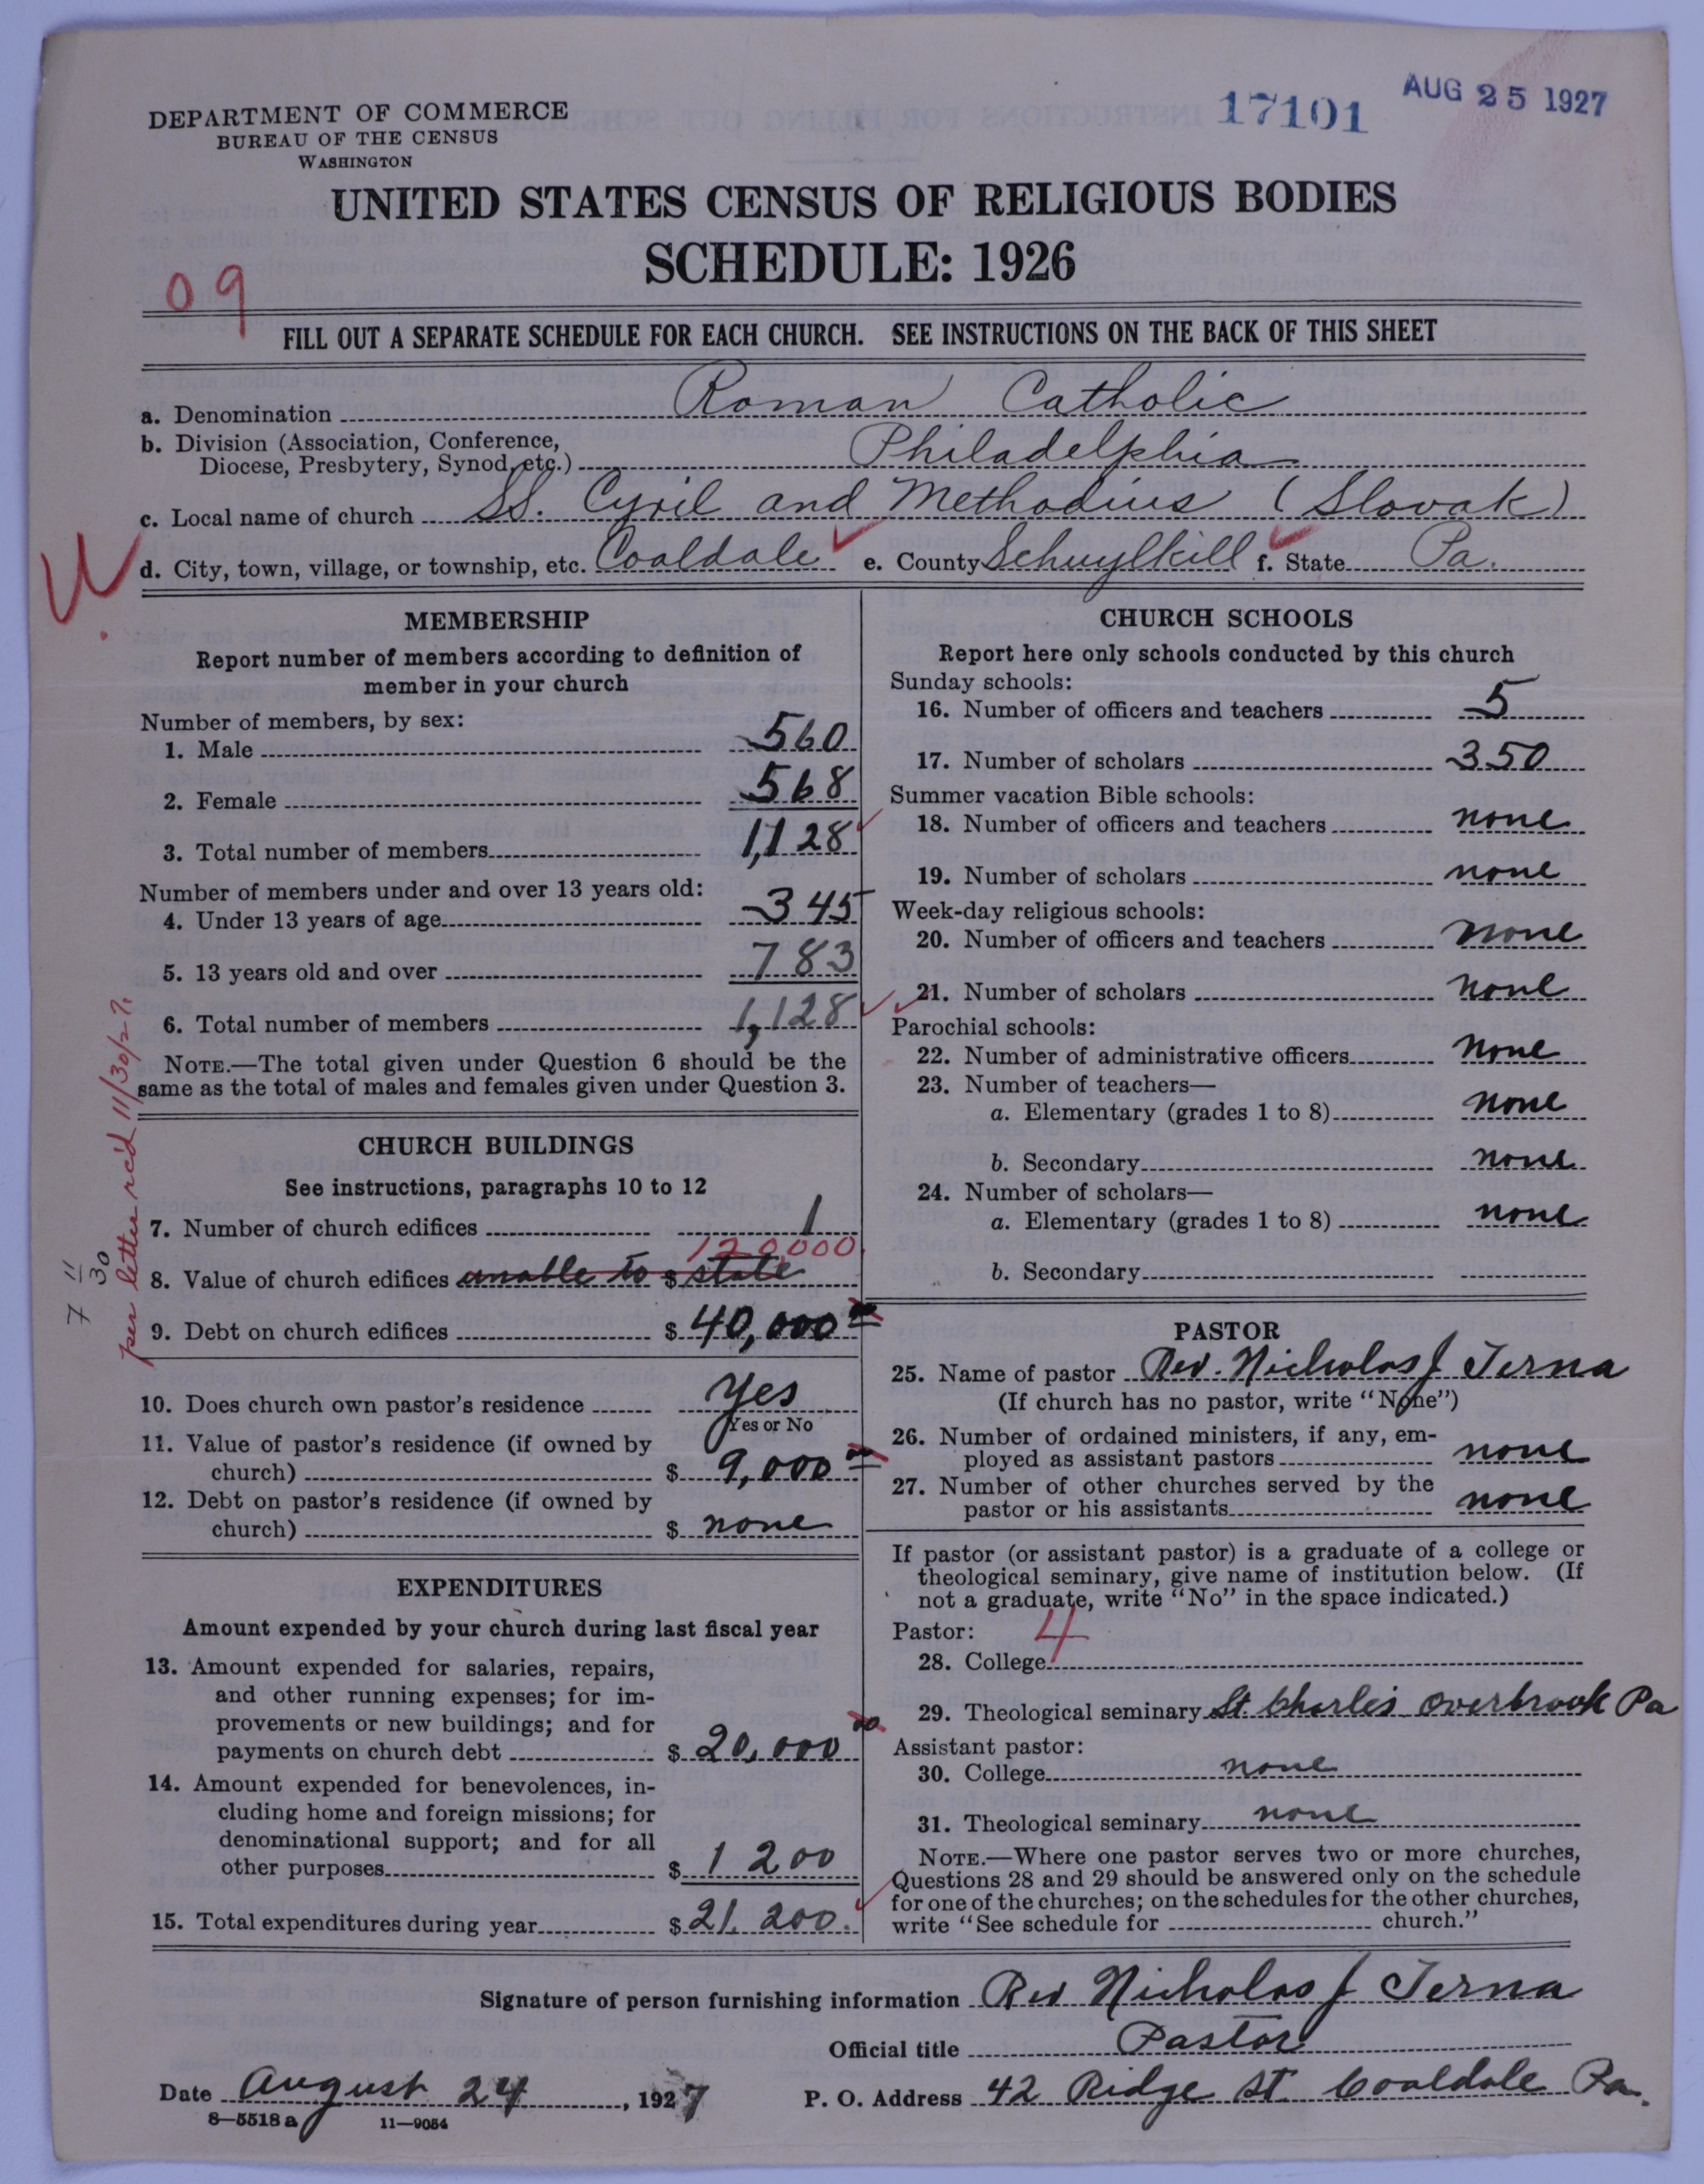 DEPARTMENT OF COMMERCE
BUREAU OF THE CENSUS
WASHINGTON
17101
AUG 25 1927
UNITED STATES CENSUS OF RELIGIOUS BODIES
SCHEDULE: 1926
09
FILL OUT A SEPARATE SCHEDULE FOR EACH CHURCH. SEE INSTRUCTIONS ON THE BACK OF THIS SHEET
a. Denomination Roman Catholic
b. Division (Association, Conference,
Diocese, Presbytery, Synod, etc.) Philadelphia
c. Local name of church SS. Cyril and Methodius (Slovak)
d. City, town, village, or township, etc. Coaldale e. County Schuylkill f. State Pa.
MEMBERSHIP
Report number of members according to definition of
member in your church
Number of members, by sex:
1. Male 560
2. Female 568
3. Total number of members 1,128
Number of members under and over 13 years old:
4. Under 13 years of age 345
5. 13 years old and over 783
6. Total number of members 1,128
NOTE.—The total given under Question 6 should be the
same as the total of males and females given under Question 3.
CHURCH BUILDINGS
See instructions, paragraphs 10 to 12
7. Number of church edifices 1
120,000
8. Value of church edifices unable to $ state
9. Debt on church edifices $ 40,000 00
10. Does church own pastor's residence Yes
Yes or No
11. Value of pastor's residence (if owned by
church) $ 9,000 00
12. Debt on pastor's residence (if owned by
church) $ none
per letter rec'd 11/30/27.
7 11/30
EXPENDITURES
Amount expended by your church during last fiscal year
13. Amount expended for salaries, repairs,
and other running expenses; for im-
provements or new buildings; and for
payments on church debt $ 20,000 00
14. Amount expended for benevolences, in-
cluding home and foreign missions; for
denominational support; and for all
other purposes $ 1 200
15. Total expenditures during year $ 21,200.
CHURCH SCHOOLS
Report here only schools conducted by this church
Sunday schools:
16. Number of officers and teachers 5
17. Number of scholars 350
Summer vacation Bible schools:
18. Number of officers and teachers none
19. Number of scholars none
Week-day religious schools:
20. Number of officers and teachers none
21. Number of scholars none
Parochial schools:
22. Number of administrative officers none
23. Number of teachers—
a. Elementary (grades 1 to 8) none
b. Secondary none
24. Number of scholars—
a. Elementary (grades 1 to 8) none
b. Secondary
PASTOR
25. Name of pastor Rev. Nicholas J Terna
(If church has no pastor, write "None")
26. Number of ordained ministers, if any, em-
ployed as assistant pastors none
27. Number of other churches served by the
pastor or his assistants none
If pastor (or assistant pastor) is a graduate of a college or
theological seminary, give name of institution below. (If
not a graduate, write "No" in the space indicated.)
Pastor: 4
28. College
29. Theological seminary St. Charles Overbrook Pa
Assistant pastor:
30. College none
31. Theological seminary none
NOTE.—Where one pastor serves two or more churches,
Questions 28 and 29 should be answered only on the schedule
for one of the churches; on the schedules for the other churches,
write "See schedule for church."
Signature of person furnishing information Rev Nicholas J Terna
Official title Pastor
Date August 24, 1927 P. O. Address 42 Ridge St. Coaldale Pa.
8—5518 a 11—9054